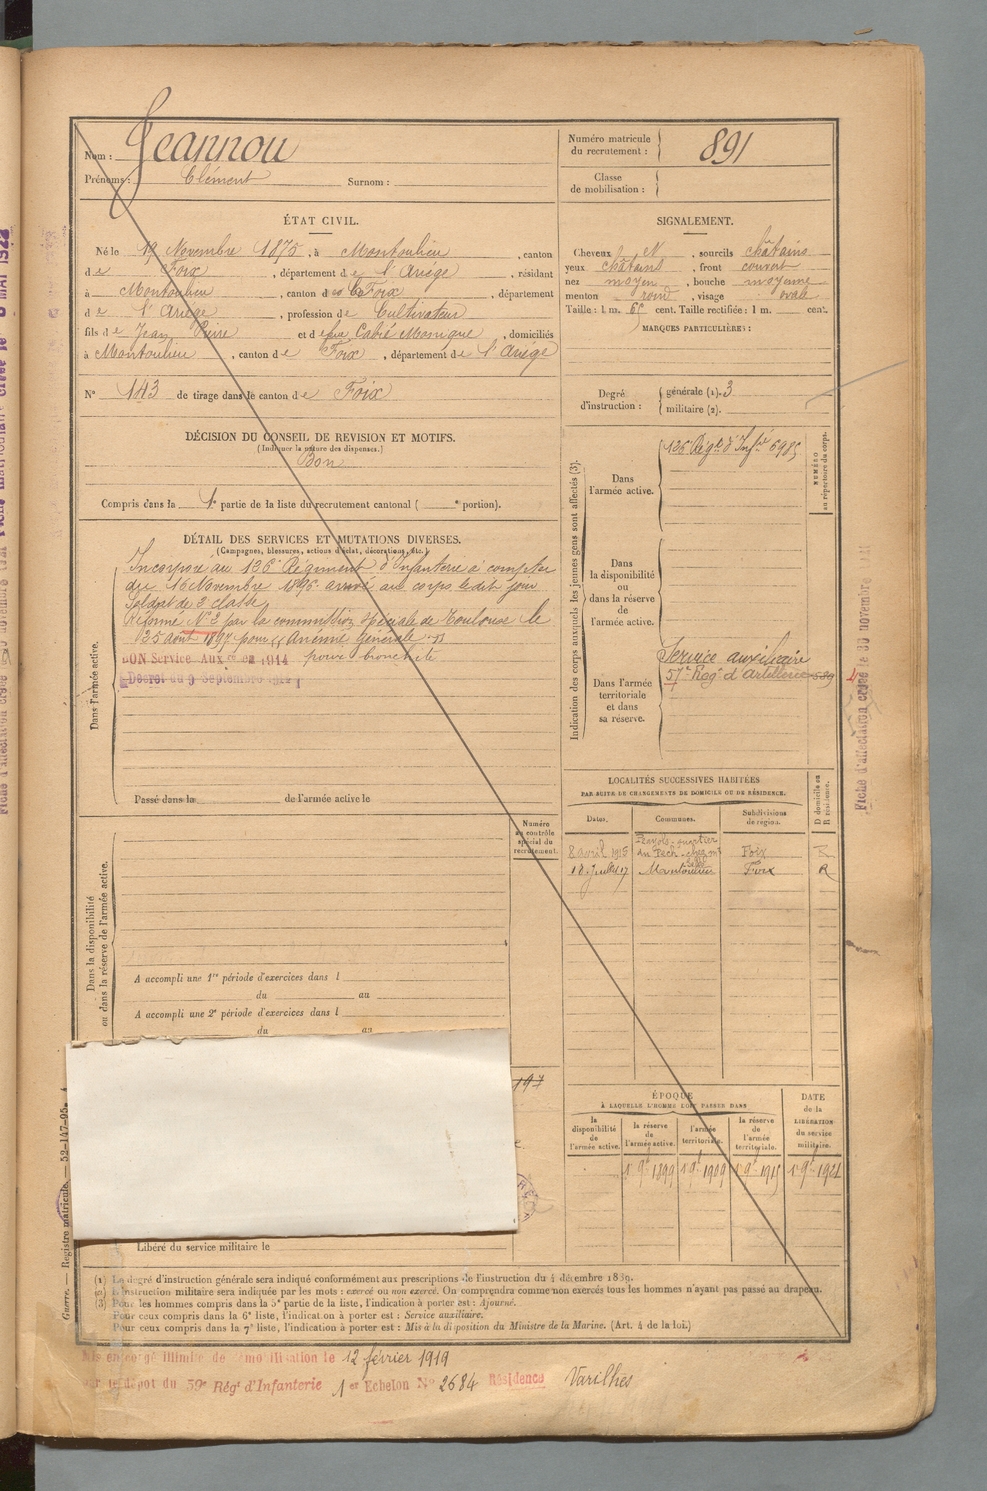 Nom : Jeannou
Prénoms : Clément Surnom :
Numéro matricule du recrutement : 891
Classe de mobilisation :
ÉTAT CIVIL.
Né le 19 Novembre 1875, à Montoulieu, canton
de Foix, département de l'Ariège, résidant
à Montoulieu, canton de Foix, département
de l'Ariège, profession de Cultivateur
fils de Jean Pierre et de feue Cabié Monique, domiciliés
à Montoulieu, canton de Foix, département de l'Ariège
N° 143 de tirage dans le canton de Foix
SIGNALEMENT.
Cheveux et, sourcils châtains
yeux châtains, front couvert
nez moyen, bouche moyenne
menton rond, visage ovale
Taille : 1 m. 65 cent. Taille rectifiée : 1 m. cent.
MARQUES PARTICULIÈRES :
Degré d'instruction : générale (1). 3
militaire (2).
DÉCISION DU CONSEIL DE REVISION ET MOTIFS.
(Indiquer la nature des dispenses.)
Bon
Compris dans la 1e partie de la liste du recrutement cantonal ( e portion).
DÉTAIL DES SERVICES ET MUTATIONS DIVERSES.
(Campagnes, blessures, actions d'éclat, décorations, etc.)
Dans l'armée active.
Incorporé au 126e Régiment d'Infanterie à compter
du 16 Novembre 1896 arrivé au corps le dit jour
Soldat de 2e classe
Réformé N° 2 par la commission spéciale de Toulouse le
25 août 1897 pour "Anémie générale"
BON Service Aux re en 1914 pour bronchite
Décret du 9 Septembre 1914
Passé dans la de l'armée active le
Indication des corps auxquels les jeunes gens sont affectés (3).
Dans l'armée active.
126 Régt d'Infie 6985
NUMÉRO au répertoire du corps.
Dans la disponibilité ou dans la réserve de l'armée active.
Dans l'armée territoriale et dans sa réserve.
Service auxiliaire
57e Régt d'Artillerie
LOCALITÉS SUCCESSIVES HABITÉES
PAR SUITE DE CHANGEMENTS DE DOMICILE OU DE RÉSIDENCE.
D domicile ou R résidence.
Dates. Communes. Subdivisions de région.
8 avril 1915 quartier du Pech Foix R
18 Juillet 17 Montoulieu Foix R
Numéro au contrôle spécial du recrutement.
Dans la disponibilité ou dans la réserve de l'armée active.
A accompli une 1re période d'exercices dans l
du au
A accompli une 2e période d'exercices dans l
du au
197
ÉPOQUE
À LAQUELLE L'HOMME DOIT PASSER DANS
la disponibilité de l'armée active.
la réserve de l'armée active.
l'armée territoriale.
la réserve de l'armée territoriale.
DATE de la LIBÉRATION du service militaire.
1er 9bre 1899 1er 9bre 1909 1er 9bre 1915 1er 9bre 1921
Libéré du service militaire le
(1) Le degré d'instruction générale sera indiqué conformément aux prescriptions de l'instruction du 4 décembre 1889.
(2) L'instruction militaire sera indiquée par les mots : exercé ou non exercé. On comprendra comme non exercés tous les hommes n'ayant pas passé au drapeau.
(3) Pour les hommes compris dans la 5e partie de la liste, l'indication à porter est : Ajourné.
Pour ceux compris dans la 6e liste, l'indication à porter est : Service auxiliaire.
Pour ceux compris dans la 7e liste, l'indication à porter est : Mis à la disposition du Ministre de la Marine. (Art. 4 de la loi.)
Guerre. — Registre matricule. — 52-147-95.
Mis en congé illimité de démobilisation le 12 février 1919
par le dépôt du 59e Régt d'Infanterie 1er Echelon N° 2684 Résidence Varilhes
Fiche d'affectation créée le 30 novembre